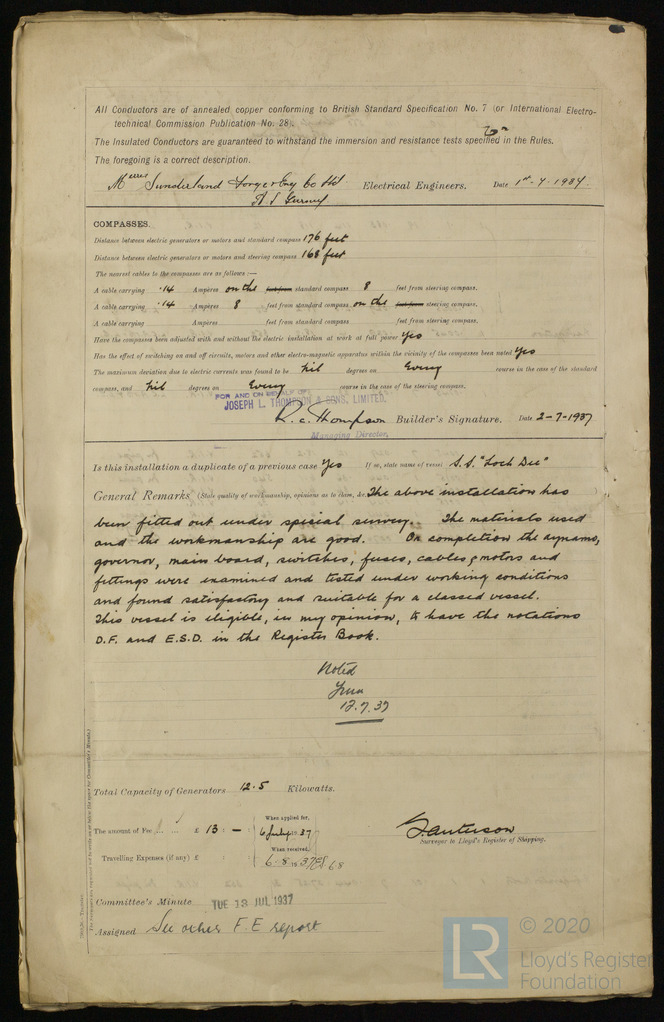 All Conductors are of annealed copper conforming to British Standard Specification No. 7 (or International Electro-
technical Commission Publication No. 28).
The Insulated Conductors are guaranteed to withstand the immersion and resistance tests specified in the Rules.
The foregoing is a correct description.
Messrs Sunderland Forge & Eng Co Ltd Electrical Engineers. Date 1st-7-1937.
COMPASSES.
Distance between electric generators or motors and standard compass 176 feet
Distance between electric generators or motors and steering compass 168 feet
The nearest cables to the compasses are as follows :—
A cable carrying .14 Ampères on the feet from standard compass 8 feet from steering compass.
A cable carrying .14 Ampères 8 feet from standard compass on the feet from steering compass.
A cable carrying Ampères feet from standard compass feet from steering compass.
Have the compasses been adjusted with and without the electric installation at work at full power Yes
Has the effect of switching on and off circuits, motors and other electro-magnetic apparatus within the vicinity of the compasses been noted Yes
The maximum deviation due to electric currents was found to be Nil degrees on Every course in the case of the standard
compass, and Nil degrees on Every course in the case of the steering compass.
FOR AND ON BEHALF OF
JOSEPH L. THOMPSON & SONS, LIMITED.
R. C. Thompson Builder's Signature. Date 2-7-1937
Managing Director.
Is this installation a duplicate of a previous case Yes If so, state name of vessel S.S. "Loch Dee"
General Remarks (State quality of workmanship, opinions as to class, &c. The above installation has
been fitted out under special survey. The materials used
and the workmanship are good. On completion the dynamo,
governor, main board, switches, fuses, cables, motors and
fittings were examined and tested under working conditions
and found satisfactory and suitable for a classed vessel.
This vessel is eligible, in my opinion, to have the notations
D.F. and E.S.D. in the Register Book.
Noted
12.7.37
Total Capacity of Generators 12.5 Kilowatts.
The amount of Fee £ 13 : — : When applied for, 6 July 1937
When received,
Travelling Expenses (if any) £ : : 6.8.1937
Surveyor to Lloyd's Register of Shipping.
Committee's Minute TUE 13 JUL 1937
Assigned See other F.E report
© 2020
LR
Lloyd's Register
Foundation